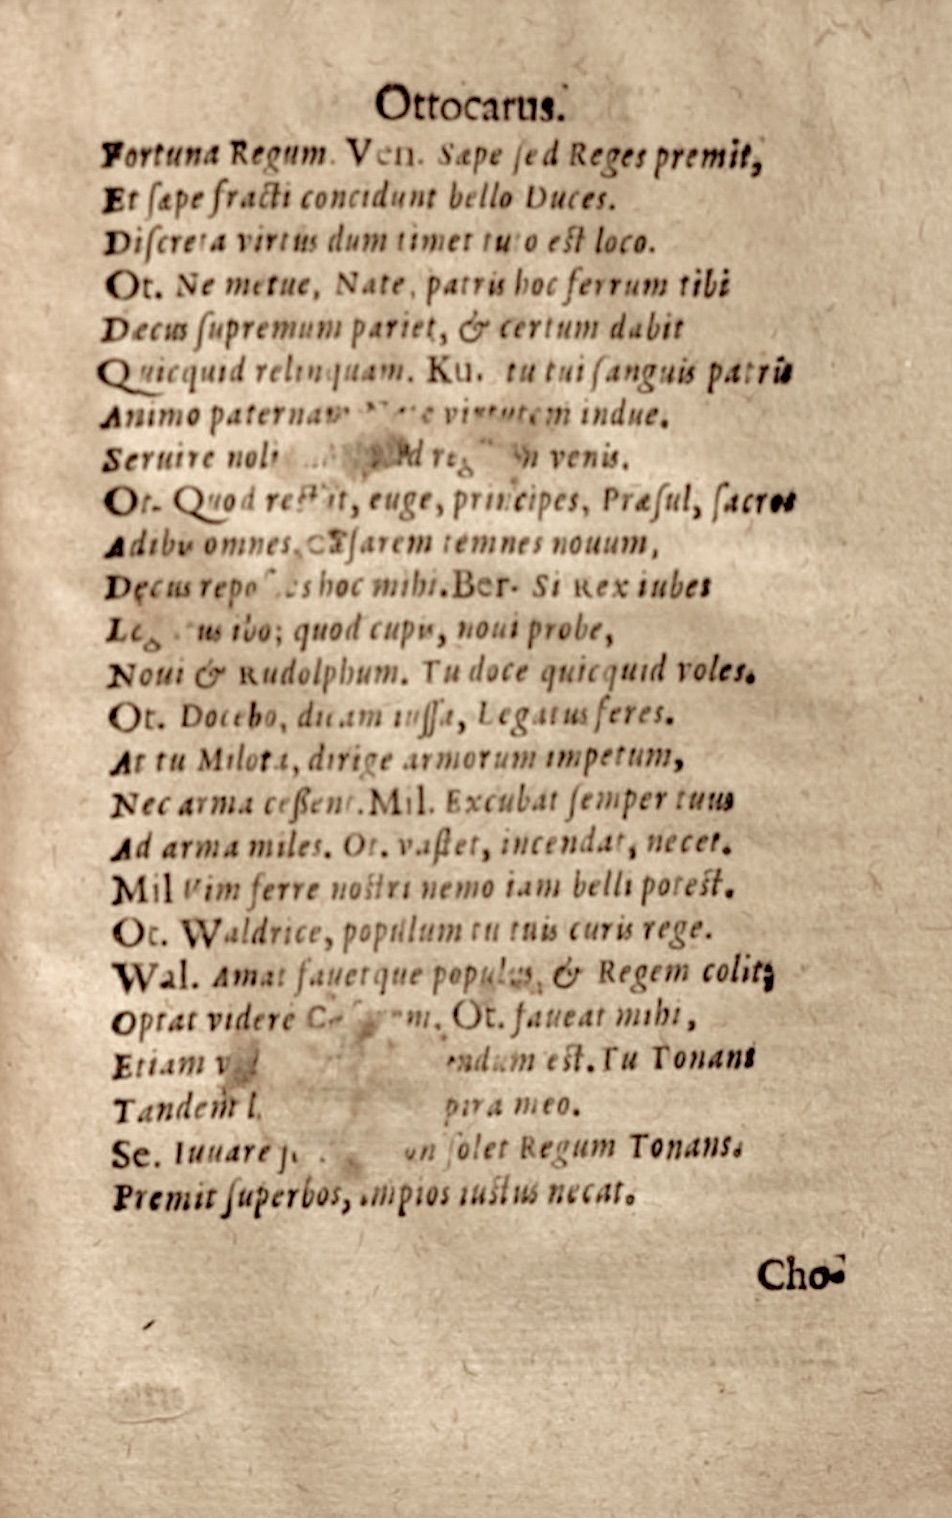 Ottocarus.
Fortuna Regum. Ven. Sæpe sed Reges premit,
Et sæpe fracti concidunt bello Duces.
Discreta virtus dum timet tuto est loco.
Ot. Ne metue, Nate, patris hoc ferrum tibi
Decus supremum pariet, & certum dabit
Quicquid relinquam. Ku. tu tui sanguis patris
Animo virtutem indue.
Seruire venis.
Ot. Quod euge, principes, Præsul, sacros
omnes. temnes nouum,
Decus hoc mihi. Ber. Si Rex iubet
ibo; quod cupis, noui probe,
Noui & Rudolphum. Tu doce quicquid voles.
Ot. Docebo, dicam iussa, Legatus feres.
At tu Milota, dirige armorum impetum,
Nec arma cessent. Mil. Excubat semper tuus
Ad arma miles. Ot. vastet, incendat, necet.
Mil Vim ferre nostri nemo iam belli potest.
Ot. Waldrice, populum tu tuis curis rege.
Wal. Amat fauetque populus, & Regem colit;
Optat videre Ot. faueat mihi,
Etiam est. Tu Tonans
Tandem meo.
Se. Iuuare solet Regum Tonans.
Premit superbos, impios iustus necat.
Cho-